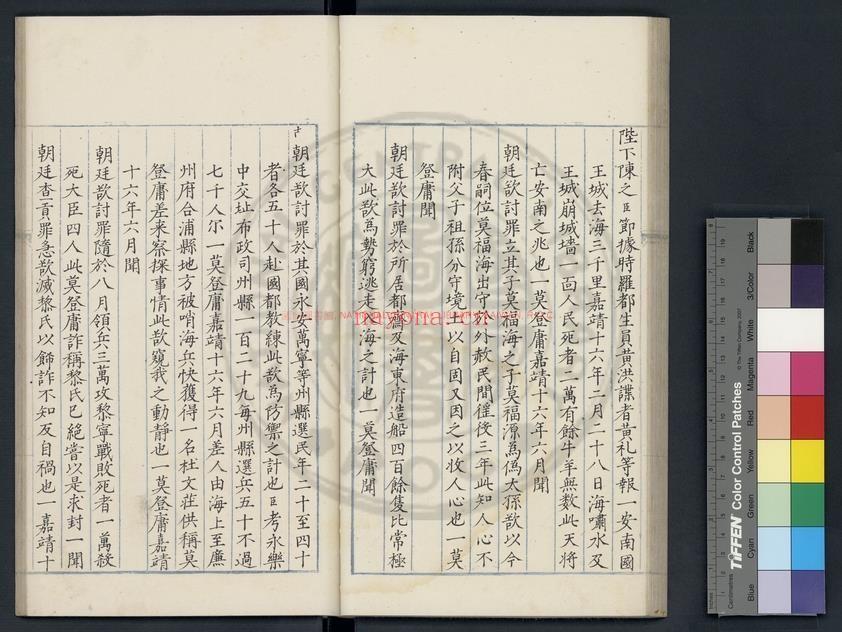 陛下陳之臣節據時羅都生員黃洪諜者黃礼等報一安南國
王城去海三千里嘉靖十六年二月二十八日海嘯水及
王城崩城墻一面人民死者二萬有餘牛羊無数此天將
亡安南之兆也一莫登庸嘉靖十六年六月聞
朝廷欲討罪立其子莫福海之子莫福源為偽太孫欲以今
春嗣位莫福海出守於外赦民間徭役三年此知人心不
附父子祖孫分守境土以自固又因之以收人心也一莫
登庸聞
朝廷欲討罪於所居都齋及海東府造船四百餘隻比常極
大此欲為勢窮逃走入海之計也一莫登庸聞
朝廷欲討罪於其國永安萬寧等州縣選民年二十至四十
者各五十人赴國都教練此欲為防禦之計也臣考永樂
中交址布政司州縣一百二十九每州縣選兵五十不過
七千人尓一莫登庸嘉靖十六年六月差人由海上至廉
州府合浦縣地方被哨海兵快獲得一名杜文莊供稱莫
登庸差来察探事情此欲窺我之動靜也一莫登庸嘉靖
十六年六月聞
朝廷欲討罪隨於八月領兵三萬攻黎寧戰敗死者一萬殺
死大臣四人此莫登庸詐稱黎氏已絕嘗以是求封一聞
朝廷查貢罪急欲滅黎氏以飾詐不知及自禍也一嘉靖十
nayona.cn
TIFFEN Color Control Patches
© The Tiffen Company, 2007
Centimetres
Inches
Blue
Cyan
Green
Yellow
Red
Magenta
White
3/Color
Black